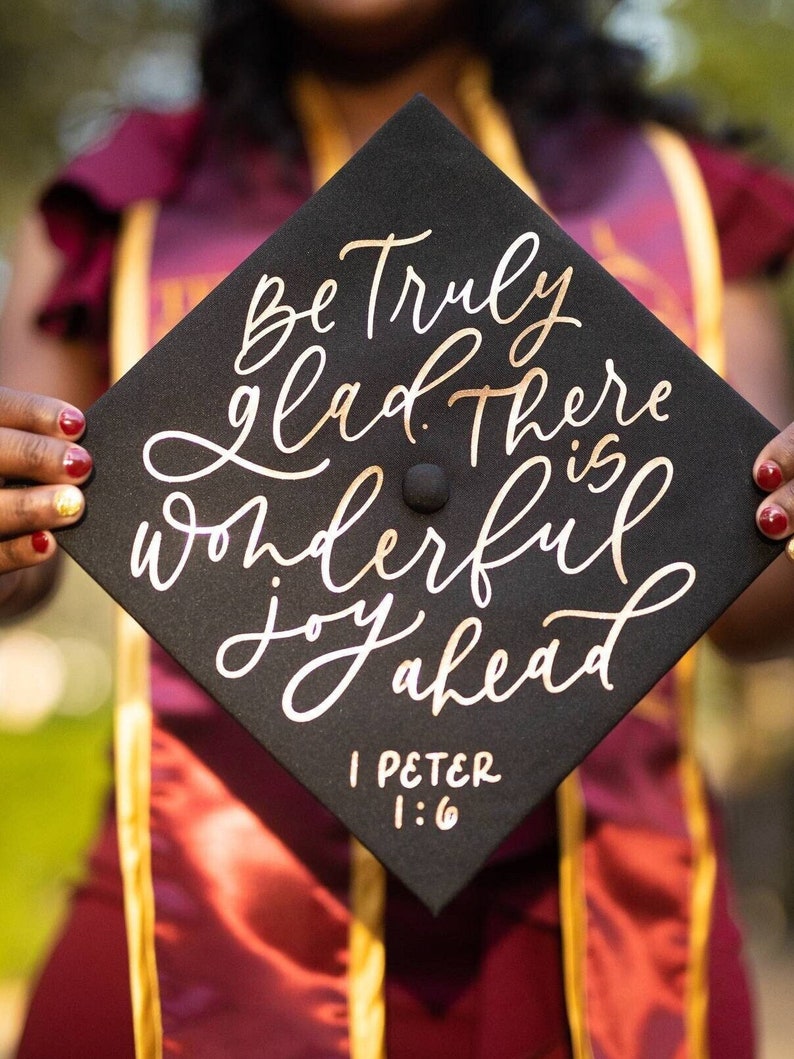 Be Truly
glad. There
is
wonderful
joy ahead
1 PETER
1:6